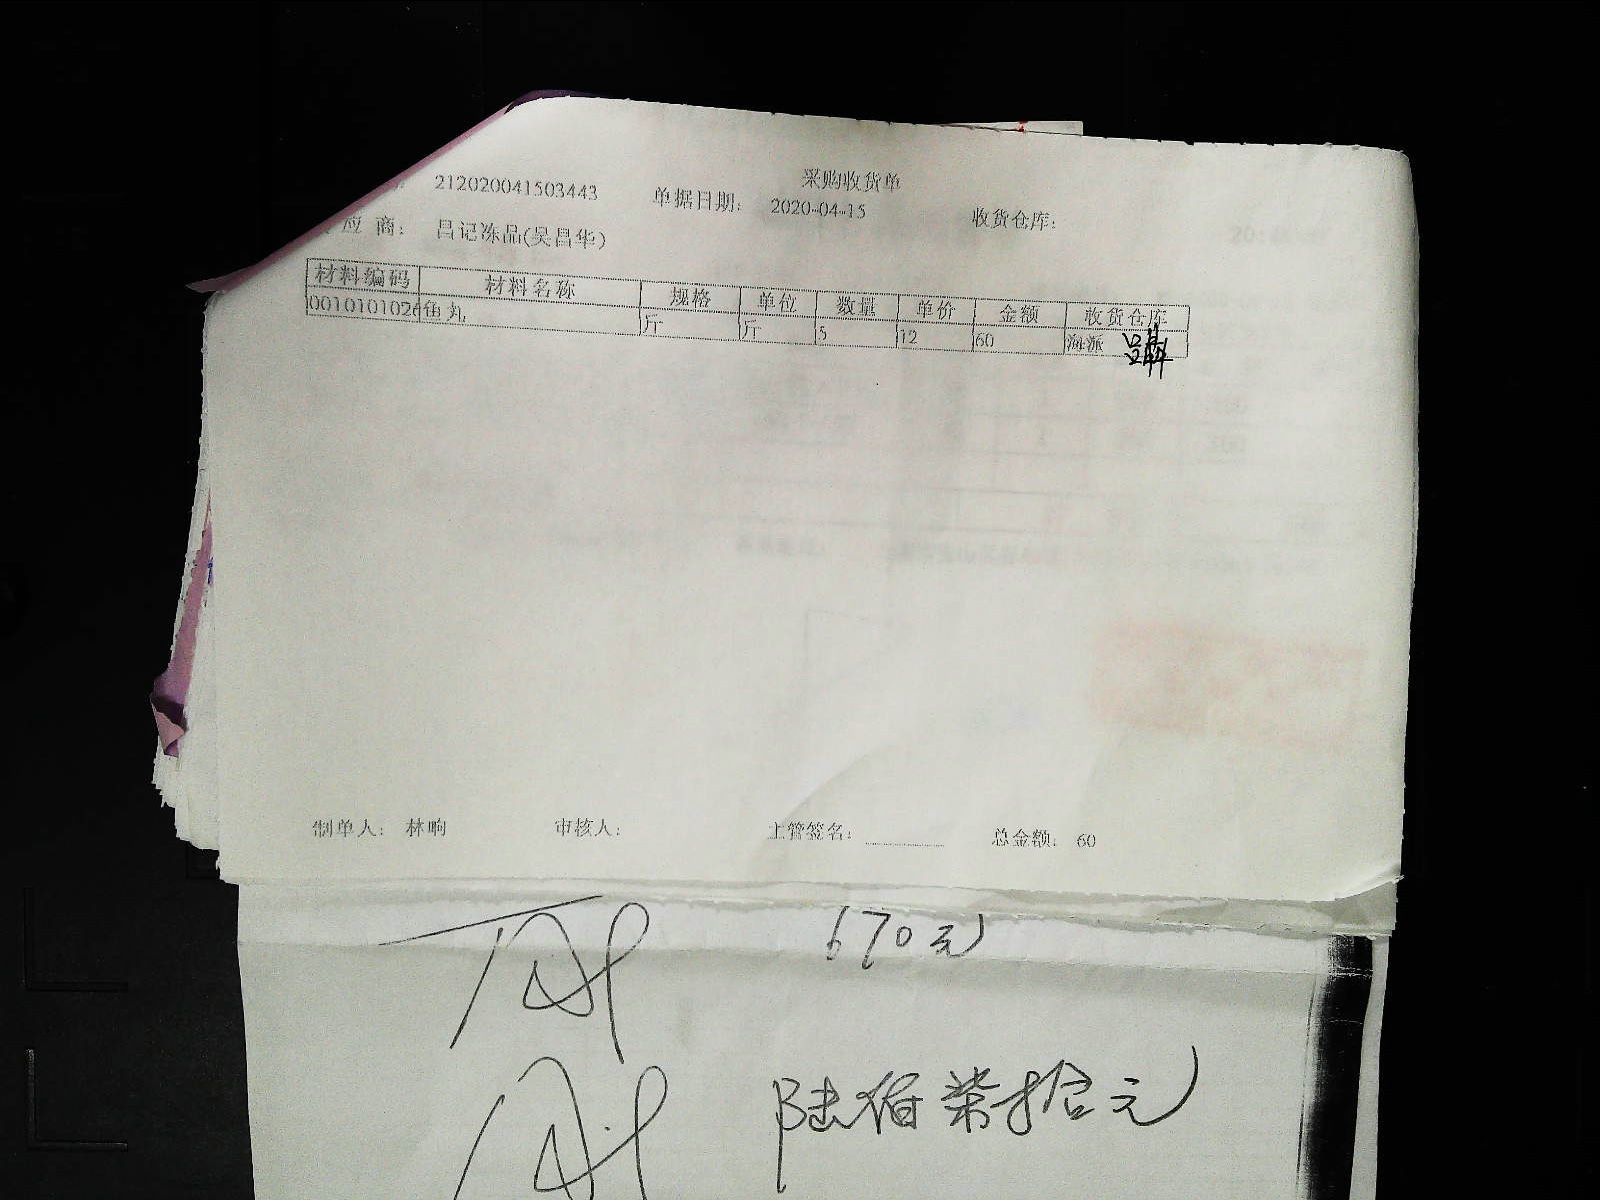 采购收货单
212020041503443 单据日期: 2020-04-15 收货仓库:
应 商: 昌记冻品(吴昌华)
材料编码 材料名称 规格 单位 数量 单价 金额 收货仓库
0010101026 鱼丸 斤 斤 5 12 60 海派
制单人: 林晌 审核人: 主管签名: 总金额: 60
670元
陆佰柒拾元